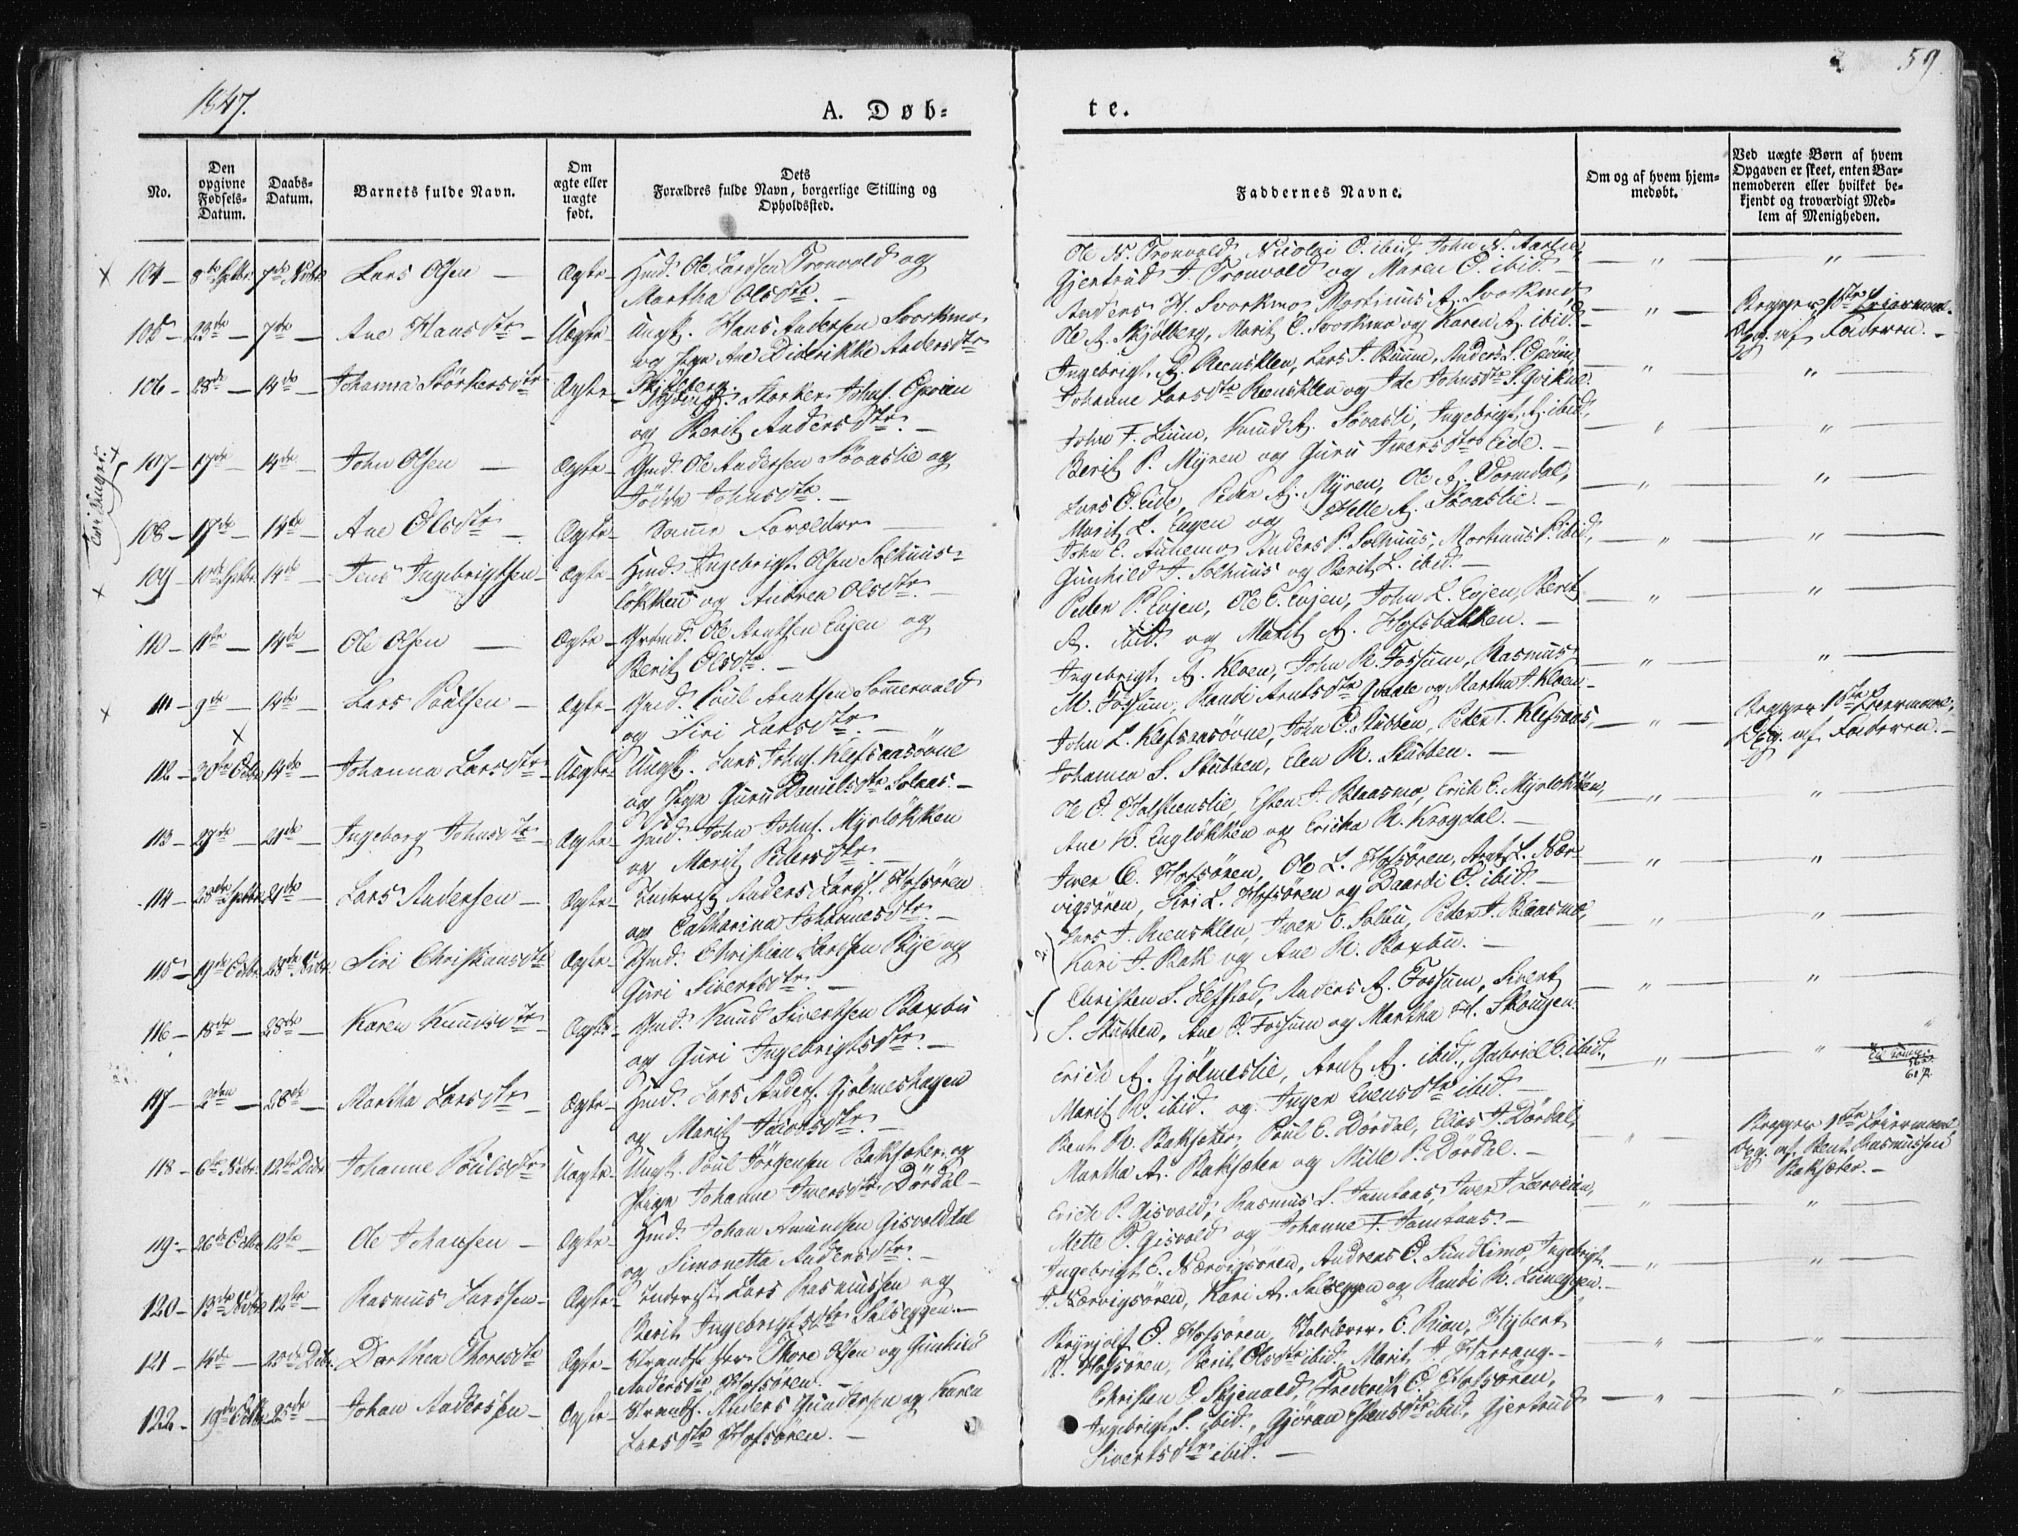 1847.
59
A. Døb=
te.
No.
Den opgivne Fødsels-Datum.
Daabs-Datum.
Barnets fulde Navn.
Om ægte eller uægte født.
Dets Forældres fulde Navn, borgerlige Stilling og Opholdssted.
Faddernes Navne.
Om og af hvem hjemmedøbt.
Ved uægte Børn af hvem Opgaven er skeet, enten Barnemoderen eller hvilket bekjendt og troværdigt Medlem af Menigheden.
104 — 8de Septbr 7de Novbr Lars Olsen — Ægte — Huusmd. Ole Larssen Tronvold og
Martha Olsdtr. —
Ole N. Tronvold, Nicolai O. ibid, John N. Aarlie,
Gjertrud J. Tronvold og Maren O. ibid. —
105 — 23de — 7de — Ane Hansdtr — Uægte — Ungk. Hans Andersen Svorkmo
og Pige Ane Diderikke Andersdtr
Skjölberg.
Anders H. Svorkmo, Martinus A. Svorkmo
Ole A. Skjölberg, Marit E. Svorkmo og Karen A. ibid. —
Begges 1ste Leiermaal.
Opg. af Faderen. —
106 — 28de — 14de — Johanna Störkersdtr Ægte — Störker Johns. Epvien
og Berit Andersdtr. —
Ingebrigt A. Reensklen, Lars J. Buum, Anders S. Epvien,
Johanne Larsdtr Reensklen og Ide Johnsdtr S. Gvikne.
107 — 17de — 14de — John Olsen — Ægte — Gmd. Ole Andersen Sövaslie og
Jödde Johnsdtr. —
John F. Lium, Knud A. Sövasli, Ingebrigt A. ibid,
Berit P. Myren og Guru Iversdtr Eide. —
108 — 17de — 14de — Ane Olsdtr — Ægte — Samme Forældre —
Lars O. Eide, Peder A. Myren, Ole A. Dormdal,
Marit L. Engen og Helle A. Sövaslie. —
109 — 10de Septbr 14de Jens Ingebrigtsen — Ægte — Huusmd. Ingebrigt Olsen Solhuus-
lökken og Andrea Olsdtr. —
John E. Aunemo, Anders P. Solhuus, Martinus P. ibid,
Gunhild J. Solhuus og Berit L. ibid. —
110 — 11te — 14de — Ole Olsen — Ægte — Ole Arntsen Eujen og
Berit Olsdtr. —
Peder P. Eujen, Ole E. Eujen, John L. Eujen, Berit
A. ibid. og Marit A. Hofsbakken. —
111 — 9de — 14de — Lars Poulsen — Ægte — Gmd. Poul Arntsen Sommervold
og Siri Larsdtr. —
Ingebrigt A. Kloen, John R. Fossum, Rasmus
M. Fossum, Randi Arntsdtr Qvaale og Martha J. Kloen. —
112 — 30te Octbr 14de — Johanna Larsdtr — Uægte — Ungk. Lars Johns. Klefsaasövne
og Pige Guru Danielsdtr Solaas. —
John L. Klefsaasövne, John O. Stubben, Peder T. Klefsaas,
Johanna S. Stubben, Elen R. Stubben. —
Begges 1ste Leiermaal,
Opg. af Faderen. —
113 — 27de — 21de — Ingeborg Johnsdtr — Ægte — Gmd. John Johns. Myrlökken
og Marit Pedersdtr. —
Ole O. Holstenslie, Esten J. Blaasmo, Erich E. Myrlökken,
Ane H. Englökken og Ericka R. Krogdal. —
114 — 28de Septbr 21de — Lars Andersen — Ægte — Inderst Anders Larss. Hofsören
og Catharina Johannesdtr. —
Iver E. Hofsören, Ole L. Hofsören, Arnt L. Nær-
vigsören, Siri L. Hofsören og Baardi O. ibid. —
115 — 19de Octbr 28de Novbr Siri Christiansdtr Ægte — Gmd. Christian Larssen Bye og
Guri Sivertsdtr. —
Lars J. Reensklen, Iver E. Solbu, Peder J. Blaasmo,
Kari J. Bak og Ane R. Boxbu. —
116 — 18de — 28de — Karen Knudsdtr Ægte — Gmd. Knud Sivertsen Boxbu
og Guri Ingebrigtsdtr. —
Christen S. Lefstad, Anders A. Fossum, Sivert
S. Stubben, Ane P. Fossum og Martha H. Skougen.
117 — 2den — 28de — Martha Larsdtr — Ægte — Huusmd. Lars Anders. Gjölmeshagen
og Marit Iversdtr. —
Erich A. Gjölmeslie, Arnt A. ibid, Gabriel E. ibid.,
Marit R. ibid. og Inger Evensdtr ibid. —
118 — 6te Novbr 12te Decbr Johanne Poulsdtr Uægte — Ungk. Poul Jörgensen Bakseter og
Pige Johanne Iversdtr Dördal —
Bent R. Bakseter, Poul E. Dördal, Elias J. Dördal,
Martha A. Bakseter og Mille P. Dördal. —
Begges 1ste Leiermaal,
Opg. af Bent Rasmussen
Bakseter. —
119 — 26de Octbr 12te — Ole Johansen — Ægte — Huusmd. Johan Amundsen Gisvolddal
og Simonetta Andersdtr. —
Erich P. Gisvold, Rasmus S. Jamtaas, Iver J. Larveien,
Mette P. Gisvold og Johanne T. Jamtaas. —
120 — 13de Novbr 12te — Rasmus Larssen — Ægte — Inderst Lars Rasmussen og
Berit Ingebrigtsdtr Solseggen. —
Ingebrigt E. Nærvigsören, Andreas O. Sundlimo, Ingebrigt
J. Nærvigsören, Kari A. Solseggen og Randi R. Lieneggen. —
121 — 14de — 25de Decbr Dorthea Thoresdtr Ægte — Strands. Thore Olsen og Gunhild
Andersdtr Hofsören. —
Brynjolf O. Hofsören, Halvor E. Rian, Hybert
R. Hofsören, Berit Olsdtr ibid, Marit J. Harrang. —
122 — 19de Octbr 25de — Johan Anderssen — Ægte — Strands. Anders Gundersen og Karen
Larsdtr Hofsören. —
Christen O. Skjenald, Frederik O. Hofsören,
Ingebrigt S. ibid., Gjöran Estensdtr ibid, Gjertrud
Sivertsdtr ibid. —